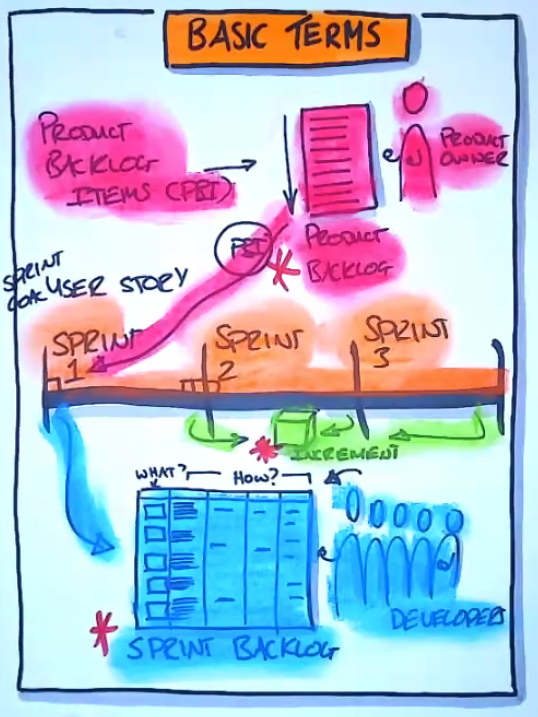 BASIC TERMS
PRODUCT
BACKLOG
ITEMS (PBI)
PRODUCT
OWNER
PBI
PRODUCT
BACKLOG
SPRINT
GOAL
USER STORY
SPRINT
1
SPRINT
2
SPRINT
3
INCREMENT
WHAT?
HOW?
DEVELOPERS
SPRINT BACKLOG